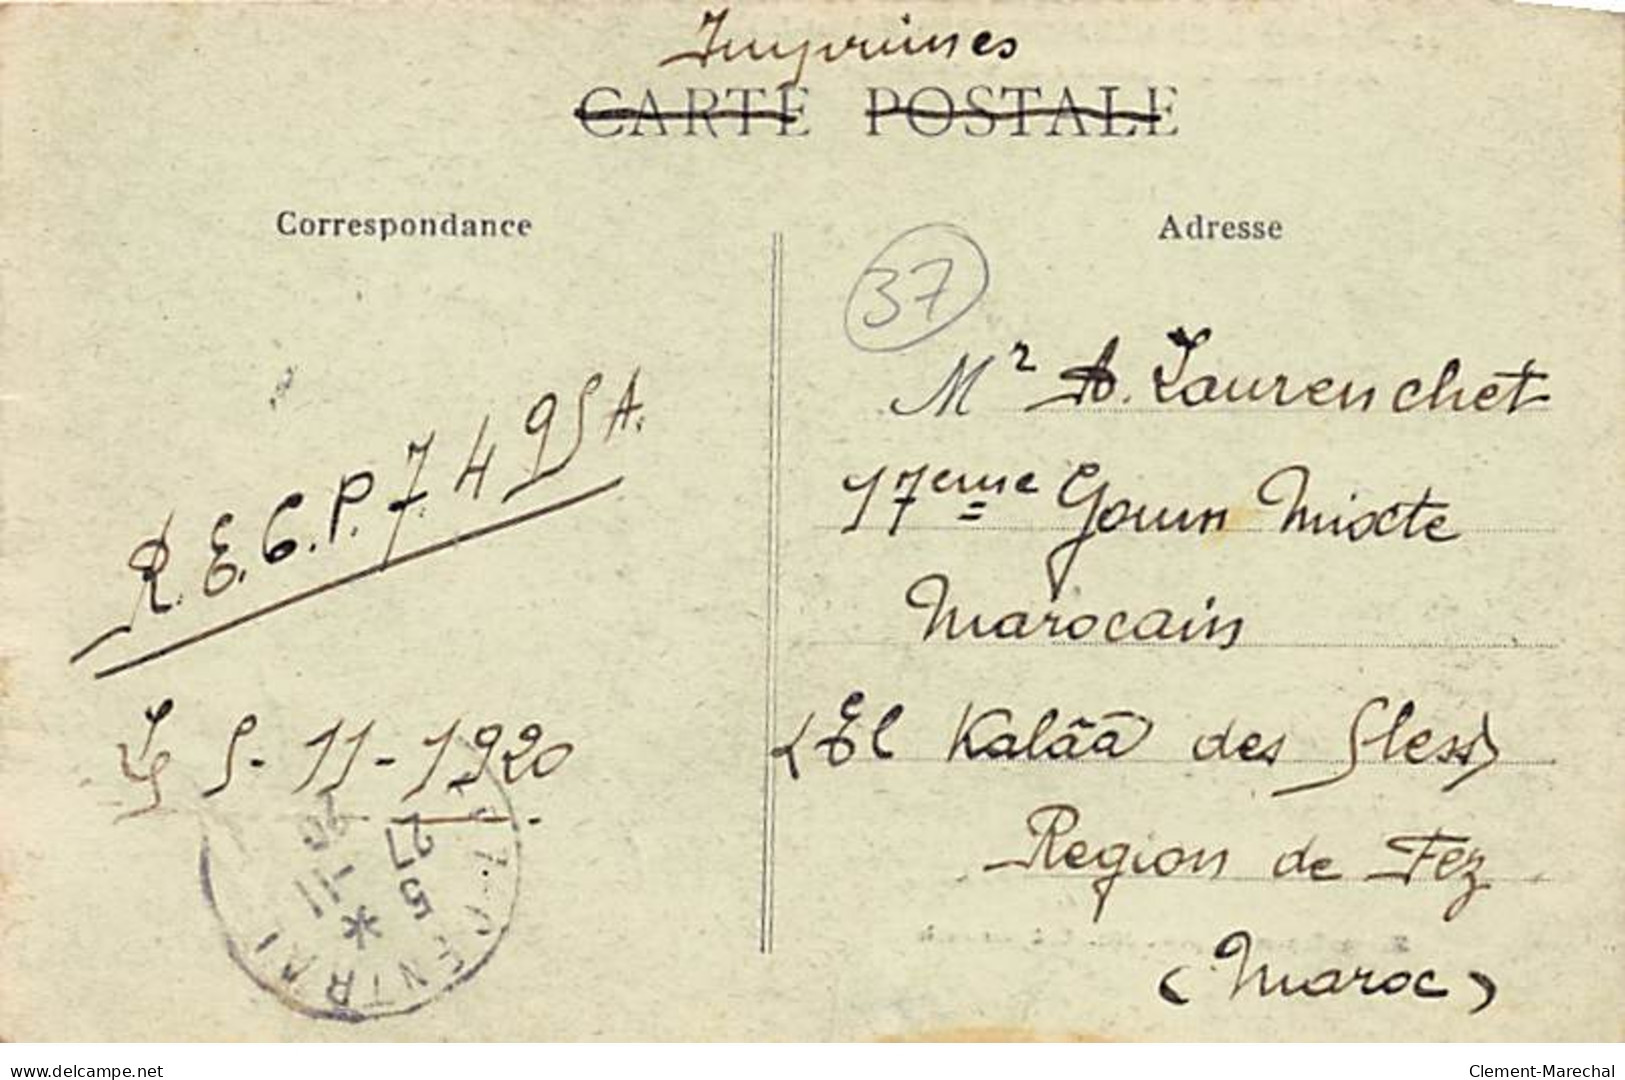 Imprimes
CARTE POSTALE
Correspondance
Adresse
37
Mr A. Laurenchet
17eme Goum Mixte
Marocain
(El Kalâa des Sless)
Region de Fez
(Maroc)
R.E.C.P. 7.495A.
Le 5-11-1920
CENTRAL
5 -11 20
27
delcampe.net
Clement-Marechal